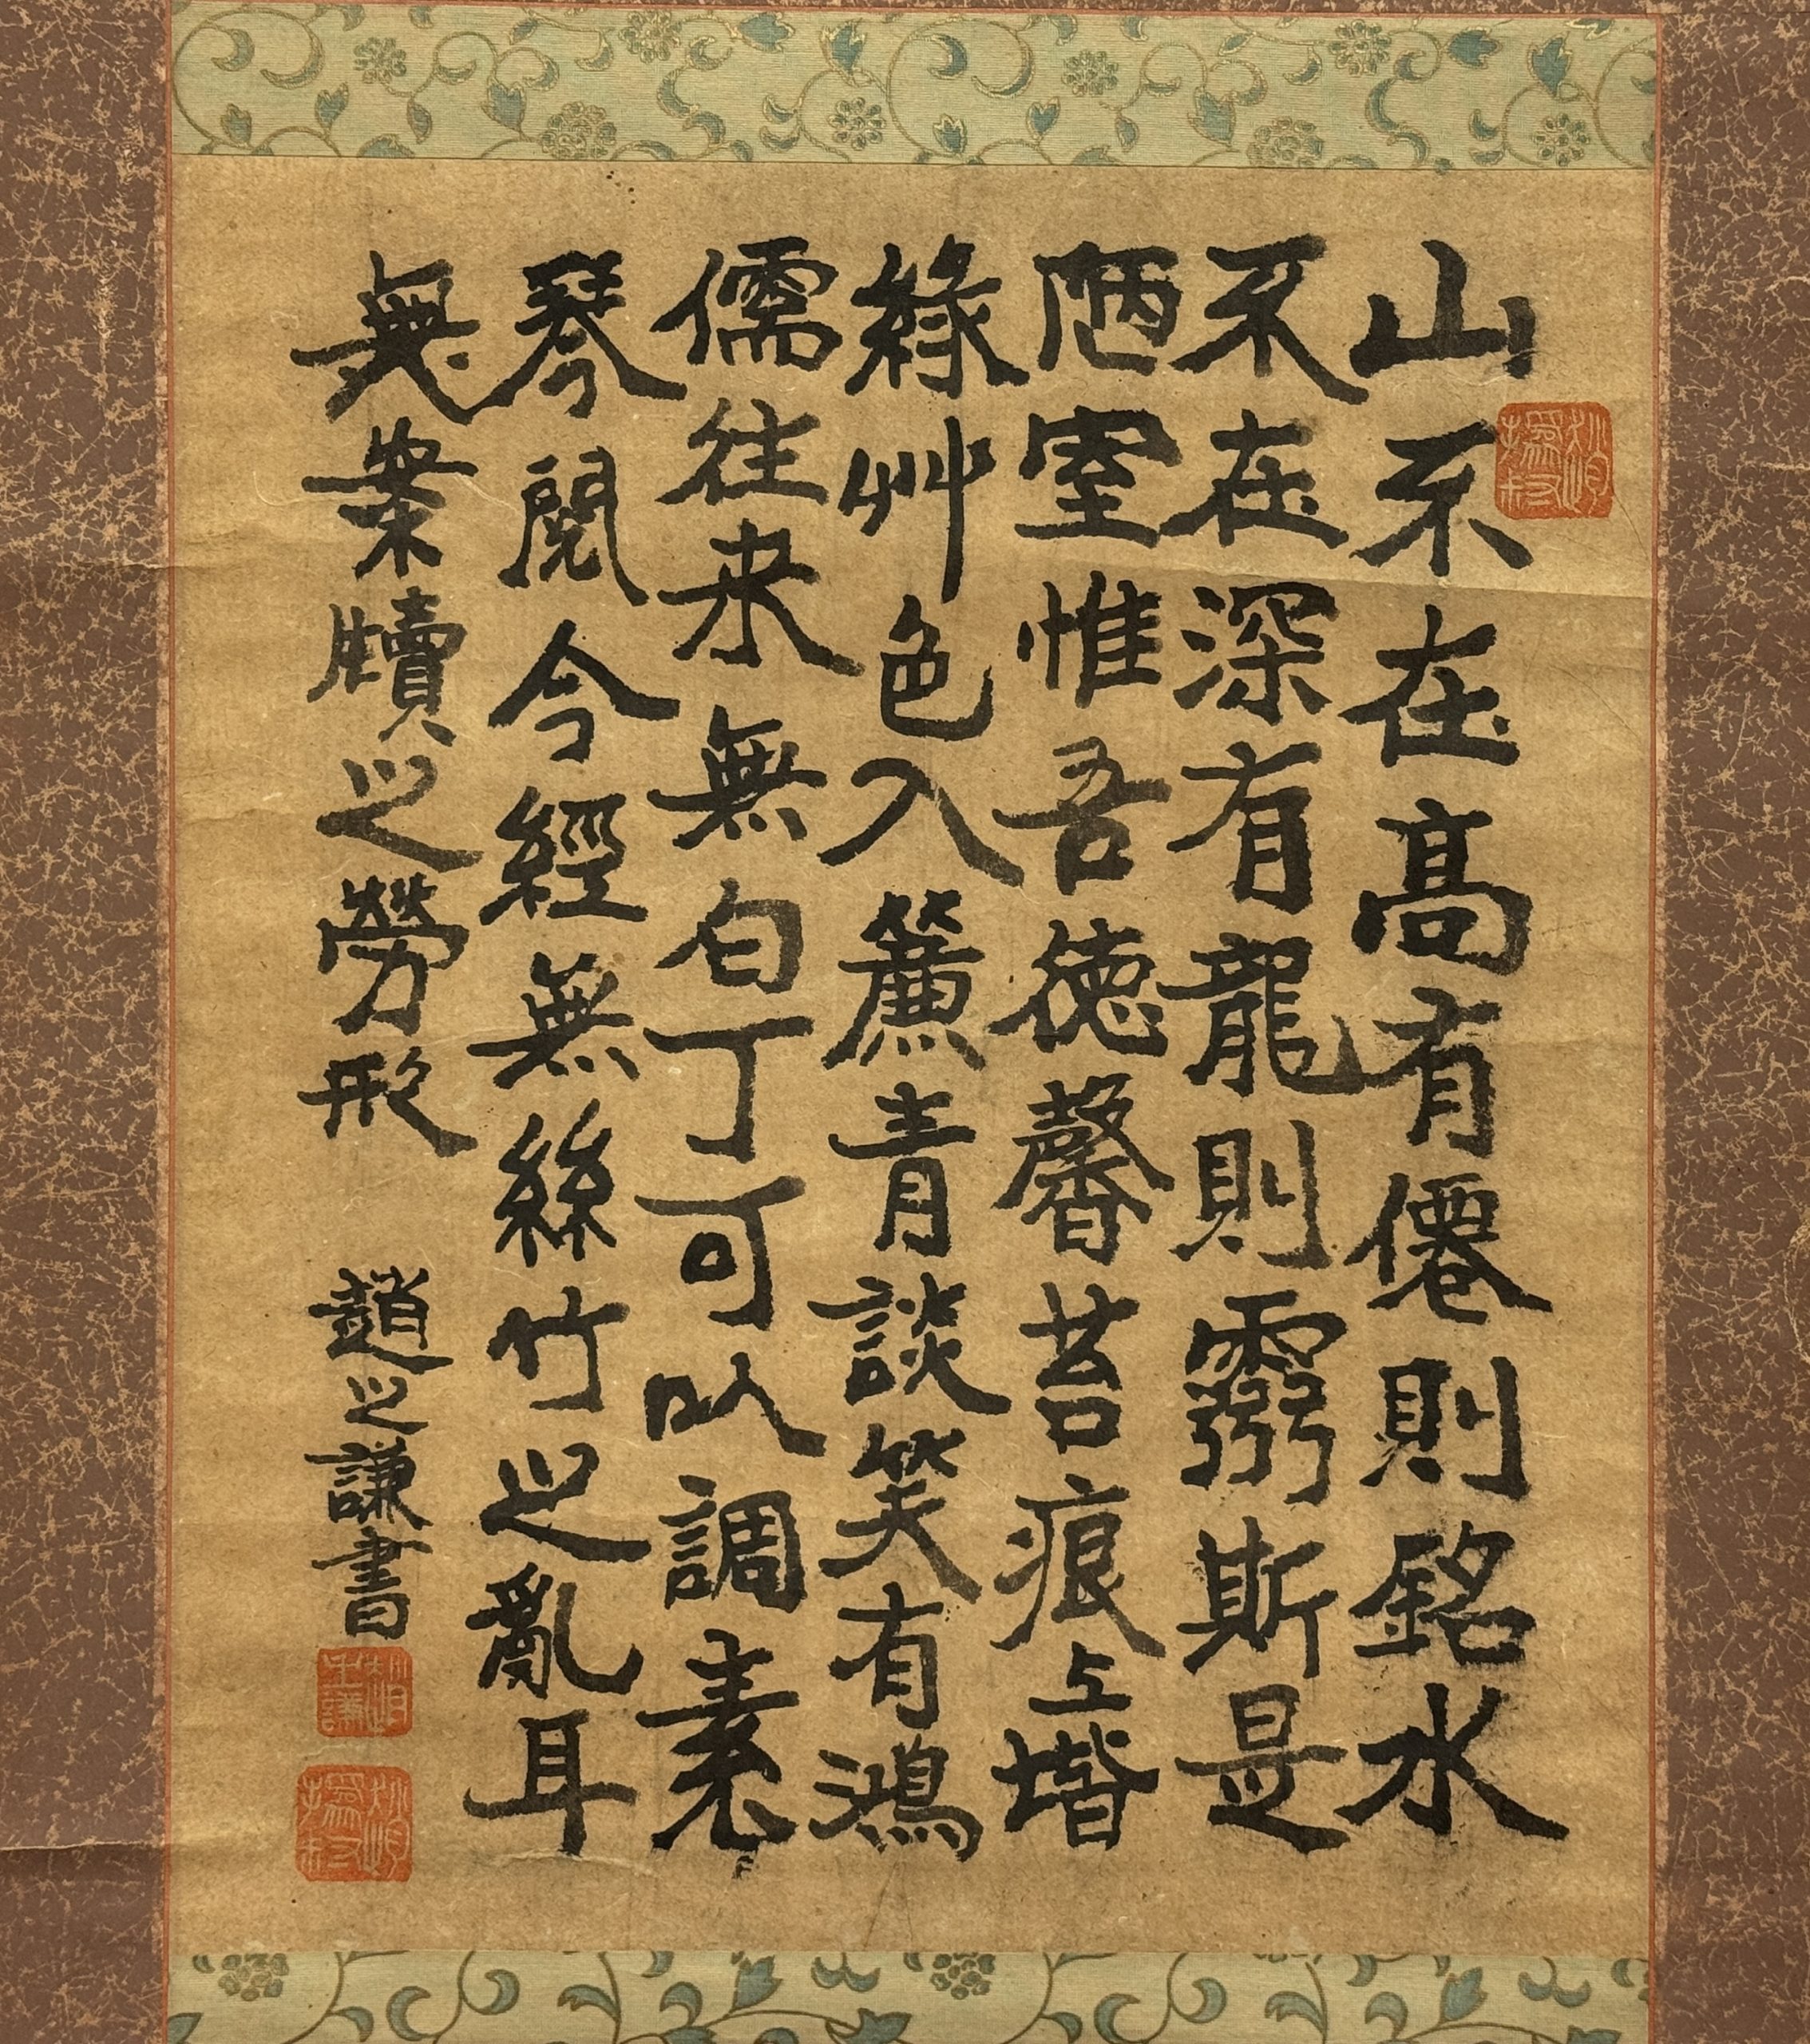 山不在高有僊則銘水
不在深有龍則靈斯是
陋室惟吾德馨苔痕上堦
緣艸色入簾青談笑有鴻
儒往来無白丁可以調素
琴閱今經無絲竹之亂耳
無案牘之勞形
趙之謙書
趙撝叔
趙之謙
趙撝叔